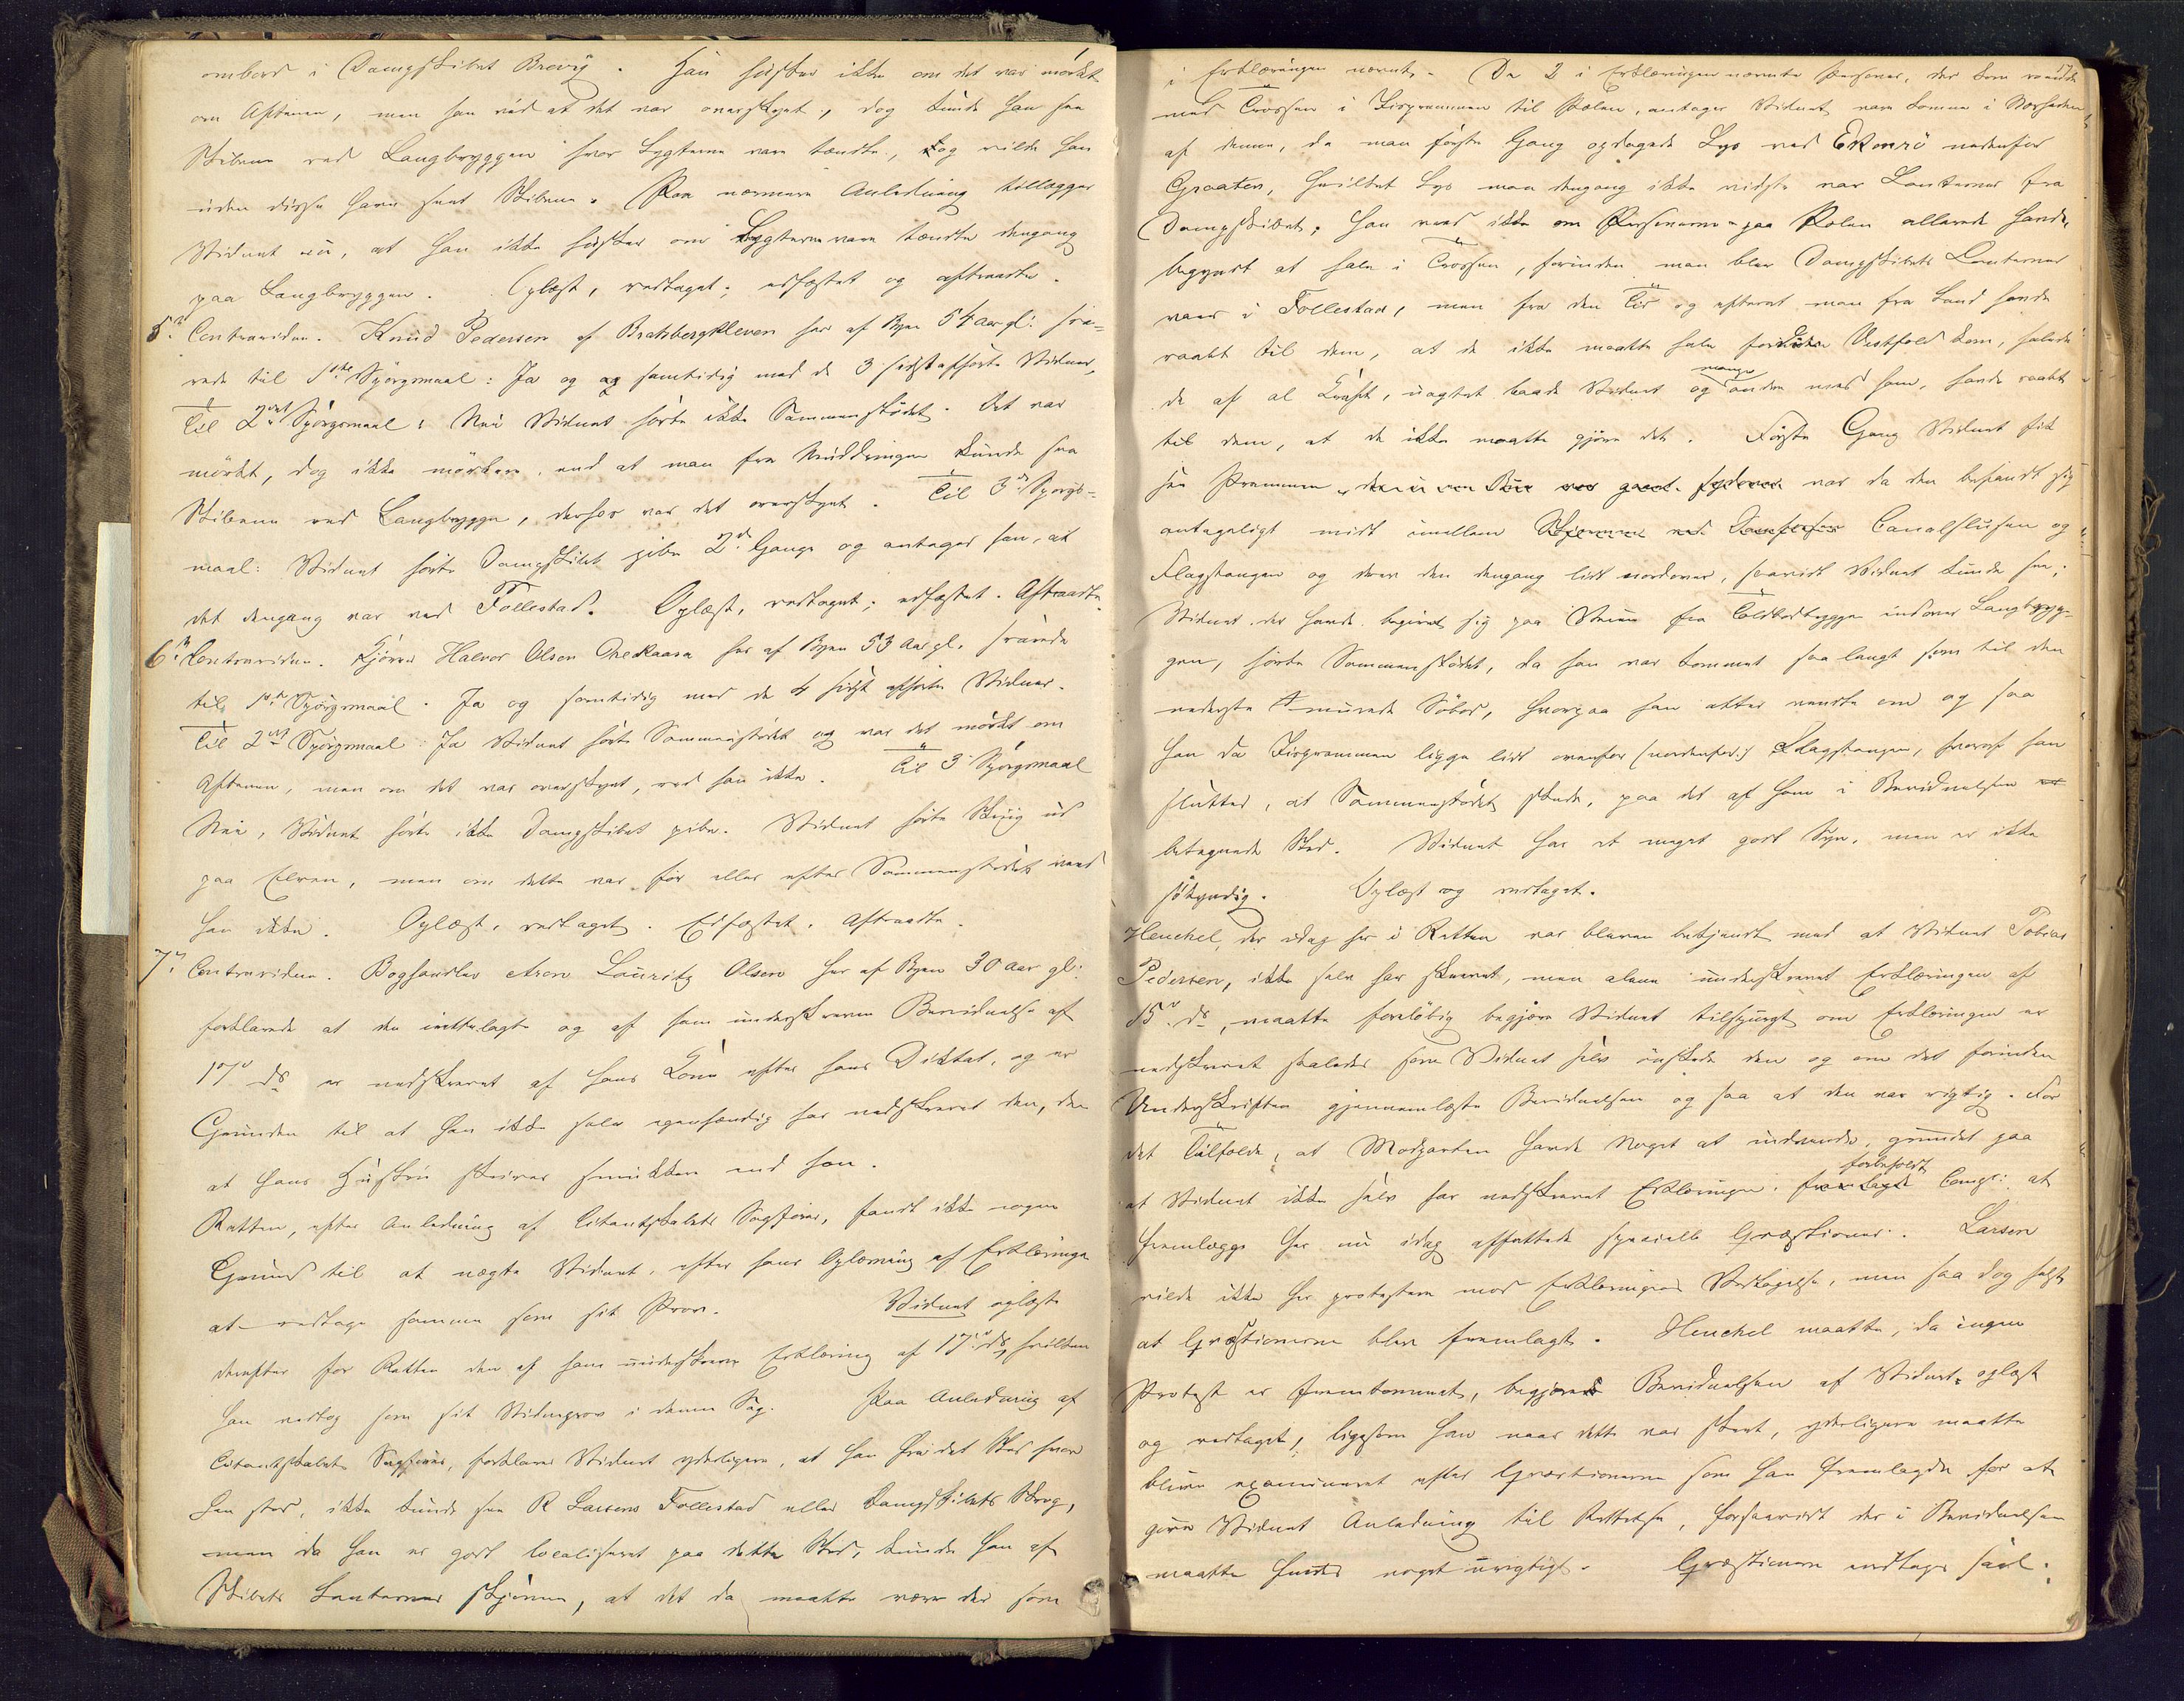 ombord i Dampskibet Brevig. Han husker ikke om det var mørkt
om Aftenen, men han ved at det var overskyet, dog kunde han see
Skibene ved Langbryggen hvor Lygterne vare tændte, dog vilde han
uden disse have seet Skibene. Paa nærmere Anledning tillægger
Vidnet nu, at han ikke husker om Lygterne vare tændte dengang
paa Langbryggen. Oplæst, vedtaget; edfæstet og aftraadte.
5te Contravidne. Knud Pedersen af Bratsbergkleven her af Byen 54 Aar gl: sva-
rede til 1ste Spörgsmaal: Ja og samtidig med de 3 sidst afhørte Vidner,
Til 2det Spörgsmaal: Nei Vidnet hørte ikke Sammenstødet. Det var
mörkt, dog ikke mörkere, end at man fra Muddringen kunde see
Skibene ved Langbrygge, derhos var det overskyet. Til 3die Spörgs-
maal: Vidnet hørte Dampskibet pibe 2de Gange og antager han, at
det dengang var ved Follestad. Oplæst, vedtaget; edfæstet. Aftraadte.
6te Contravidne. Halvor Olsen her af Byen 53 Aar gl. svarede
til 1ste Spörgsmaal. Ja og samtidig med de 4 sidst afhørte Vidner.
Til 2det Spörgsmaal: Ja Vidnet hørte Sammenstødet og var det mörkt om
Aftenen, men om det var overskyet, ved han ikke. Til 3die Spörgsmaal
Nei, Vidnet hørte ikke Dampskibet pibe. Vidnet hørte Skrig ud
paa Elven, men om dette var før eller efter Sammenstødet veed
han ikke. Oplæst, vedtaget. Edfæstet. Aftraadte.
7de Contravidne. Boghandler Aron Lauritz Olsen her af Byen 30 Aar gl:
forklarede at den indlagte og af ham underskrevne Bevidnelse af
17de ds er nedskrevet af hans Kone efter hans Diktat, og er
Grunden til at han ikke selv egenhændig har nedskrevet den, den
at hans Hustru skriver smukkere end han.
Retten, efter Anledning af Citantskabets Sagfører, fandt ikke nogen
Grund til at nægte Vidnet, efter hans Oplæsning af Erklæringen
at vedtage samme som sit Prov. Vidnet oplæste
derefter for Retten den af ham underskrevne Erklæring af 17de ds, hvilken
han vedtog som sit Vidneprov i denne Sag. Paa Anledning af
Citantskabets Sagfører, forklarer Vidnet yderligere, at han fra det Sted hvor
han stod, ikke kunde see R Larsens Follestad eller Dampskibets Skrog,
men da han er godt localiseret paa dette Sted, kunde han af
Skibets Lanterner skjönne, at det da maatte være der som
i Erklæringen nævnt. De 2 i Erklæringen nævnte Personer, der kom roende
med Trossen i Fisprammen til Pælen, antager Vidnet vare komne i Nærheden
af denne, da man første Gang opdagede Lys ved nedenfor
Graaten, hvilket Lys man dengang ikke vidste var Lanterner fra
Dampskibet; han veed ikke om Personerne paa Pælen allerede havde
begyndt at hale i Trossen, forinden man blev Dampskibets Lanterner
vaer i Follestad, men fra den Tid og efterat man fra Land havde
raabt til dem, at de ikke maatte hale forinden Vestfold kom, halede
de af al Kraft, uagtet baade Vidnet og mange andre med ham, havde raabt
til dem, at de ikke maatte gjøre det. Første Gang Vidnet fik
see Prammen var da den befandt sig
antageligt midt imellem Canalslusen og
Flagstangen og drev den dengang lidt nordover, saavidt Vidnet kunde see;
Vidnet der havde begivet sig paa Veien fra Toldbodbrygge indover Langbryg-
gen, hørte Sammenstødet, da han var kommet saa langt som til den
nederste murede Söbod, hvorpaa han atter vendte om og saa
han da Fisprammen ligge lidt ovenfor (nordenfor:) Flagstangen, hvoraf han
slutter, at Sammenstødet skede, paa det af ham i Bevidnelsen
betegnede Sted. Vidnet har et meget godt Syn, men er ikke
søkyndig. Oplæst og vedtaget.
Henchel, der idag her i Retten var bleven bekjendt med at Vidnet Tobias
Pedersen, ikke selv har skrevet, men alene underskrevet Erklæringen af
15de ds, maatte foreløbig begjære Vidnet tilspurgt om Erklæringen er
nedskrevet saaledes som Vidnet selv önskede den og om det forinden
Underskriften gjennemlæste Bevidnelsen og saa at den var rigtig. For
det Tilfælde, at Modparten havde Noget at indvende, grundet paa
at Vidnet ikke selv har nedskrevet Erklæringen, forbeholdt Comp: at
fremlægge her nu idag affattede specielle Qvæstioner. Larsen
vilde ikke her protestere mod Erklæringens Vedtagelse, men saa dog helst
at Qvæstionerne blev fremlagt. Henchel maatte, da ingen
Protest er fremkommet, begjære Bevidnelsen af Vidnet oplæst
og vedtaget, ligesom han naar dette var skeet, yderligere maatte
blive examineret efter Qvæstionerne som han fremlagde for at
give Vidnet Anledning til Rettelse, forsaavidt der i Bevidnelsen
maatte findes noget urigtigt. Qvæstionerne modtages saal.